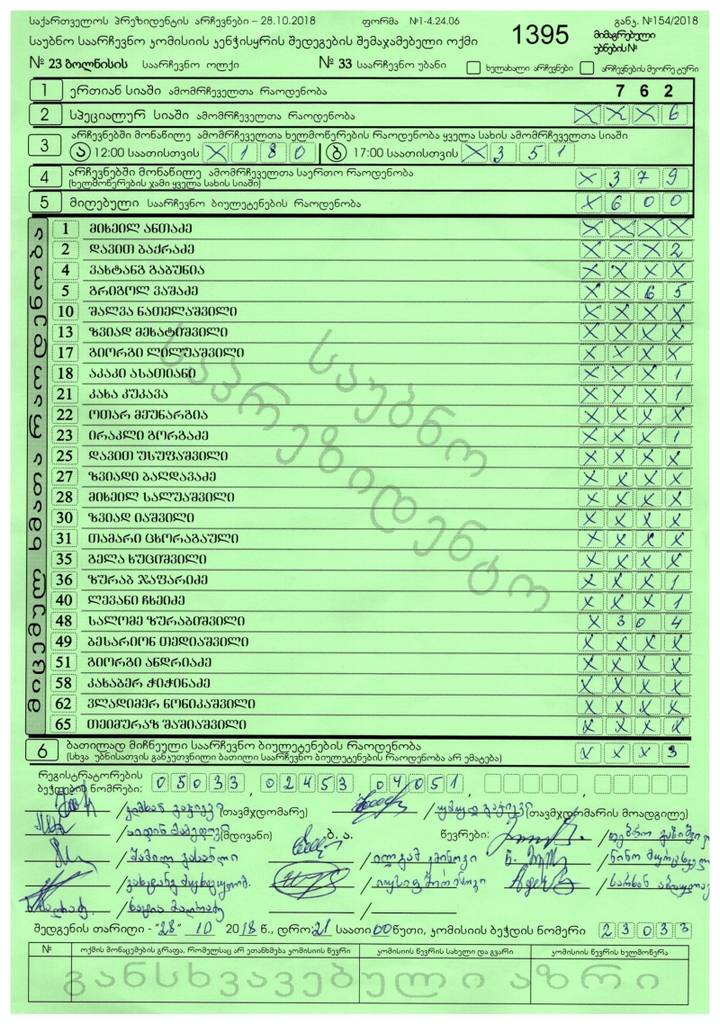 საქართველოს პრეზიდენტის არჩევნები – 28.10.2018 ფორმა №1-4.24.06 განკ. №154/2018
საუბნო საარჩევნო კომისიის კენჭისყრის შედეგების შემაჯამებელი ოქმი 1395 მიმაგრებული უბნების №
№ 23 ბოლნისის საარჩევნო ოლქი № 33 საარჩევნო უბანი ხელახალი არჩევნები არჩევნების მეორე ტური
1 ერთიან სიაში ამომრჩეველთა რაოდენობა 7 6 2
2 სპეციალურ სიაში ამომრჩეველთა რაოდენობა X X X 6
3 არჩევნებში მონაწილე ამომრჩეველთა ხელმოწერების რაოდენობა ყველა სახის ამომრჩეველთა სიაში
ა 12:00 საათისთვის X 1 8 0 ბ 17:00 საათისთვის X 3 5 1
4 არჩევნებში მონაწილე ამომრჩეველთა საერთო რაოდენობა X 3 7 9
(ხელმოწერების ჯამი ყველა სახის სიაში)
5 მიღებული საარჩევნო ბიულეტენების რაოდენობა X 6 0 0
მიცემულ ხმათა რაოდენობა
1 მიხეილ ანთაძე X X X X
2 დავით ბაქრაძე X X X 2
4 ვახტანგ გაბუნია X X X X
5 გრიგოლ ვაშაძე X X 6 5
10 შალვა ნათელაშვილი X X X X
13 ზვიად მეხატიშვილი X X X X
17 გიორგი ლილუაშვილი X X X X
18 აკაკი ასათიანი X X X 1
21 კახა კუკავა X X X 1
22 ოთარ მეუნარგია X X X X
23 ირაკლი გორგაძე X X X 1
25 დავით უსუფაშვილი X X X X
27 ზვიადი ბაღდავაძე X X X X
28 მიხეილ სალუაშვილი X X X X
30 ზვიად იაშვილი X X X X
31 თამარი ცხორაგაული X X X X
35 გელა ხუციშვილი X X X X
36 ზურაბ ჯაფარიძე X X X 1
40 ლევანი ჩხეიძე X X X 1
48 სალომე ზურაბიშვილი X 3 0 4
49 ბესარიონ თედიაშვილი X X X X
51 გიორგი ანდრიაძე X X X X
58 კახაბერ ჭიჭინაძე X X X X
62 ვლადიმერ ნონიკაშვილი X X X X
65 თეიმურაზ შაშიაშვილი X X X X
საუბნო
საპრეზიდენტო
6 ბათილად მიჩნეული საარჩევნო ბიულეტენების რაოდენობა X X X 3
(სხვა უბნისათვის განკუთვნილი ბათილი საარჩევნო ბიულეტენების რაოდენობა არ ემატება)
რეგისტრატორების
ბეჭდების ნომრები: 0 5 0 3 3 0 2 4 5 3 0 4 0 5 1
(თავმჯდომარე) (თავმჯდომარის მოადგილე)
(მდივანი) ბ. ა. წევრები:
შედგენის თარიღი - "28" 10 2018 წ., დრო: 21 საათი 00 წუთი, კომისიის ბეჭდის ნომერი 2 3 0 3 3
№ ოქმის მონაცემების გრაფა, რომელსაც არ ეთანხმება კომისიის წევრი კომისიის წევრის სახელი და გვარი კომისიის წევრის ხელმოწერა
განსხვავებული აზრი